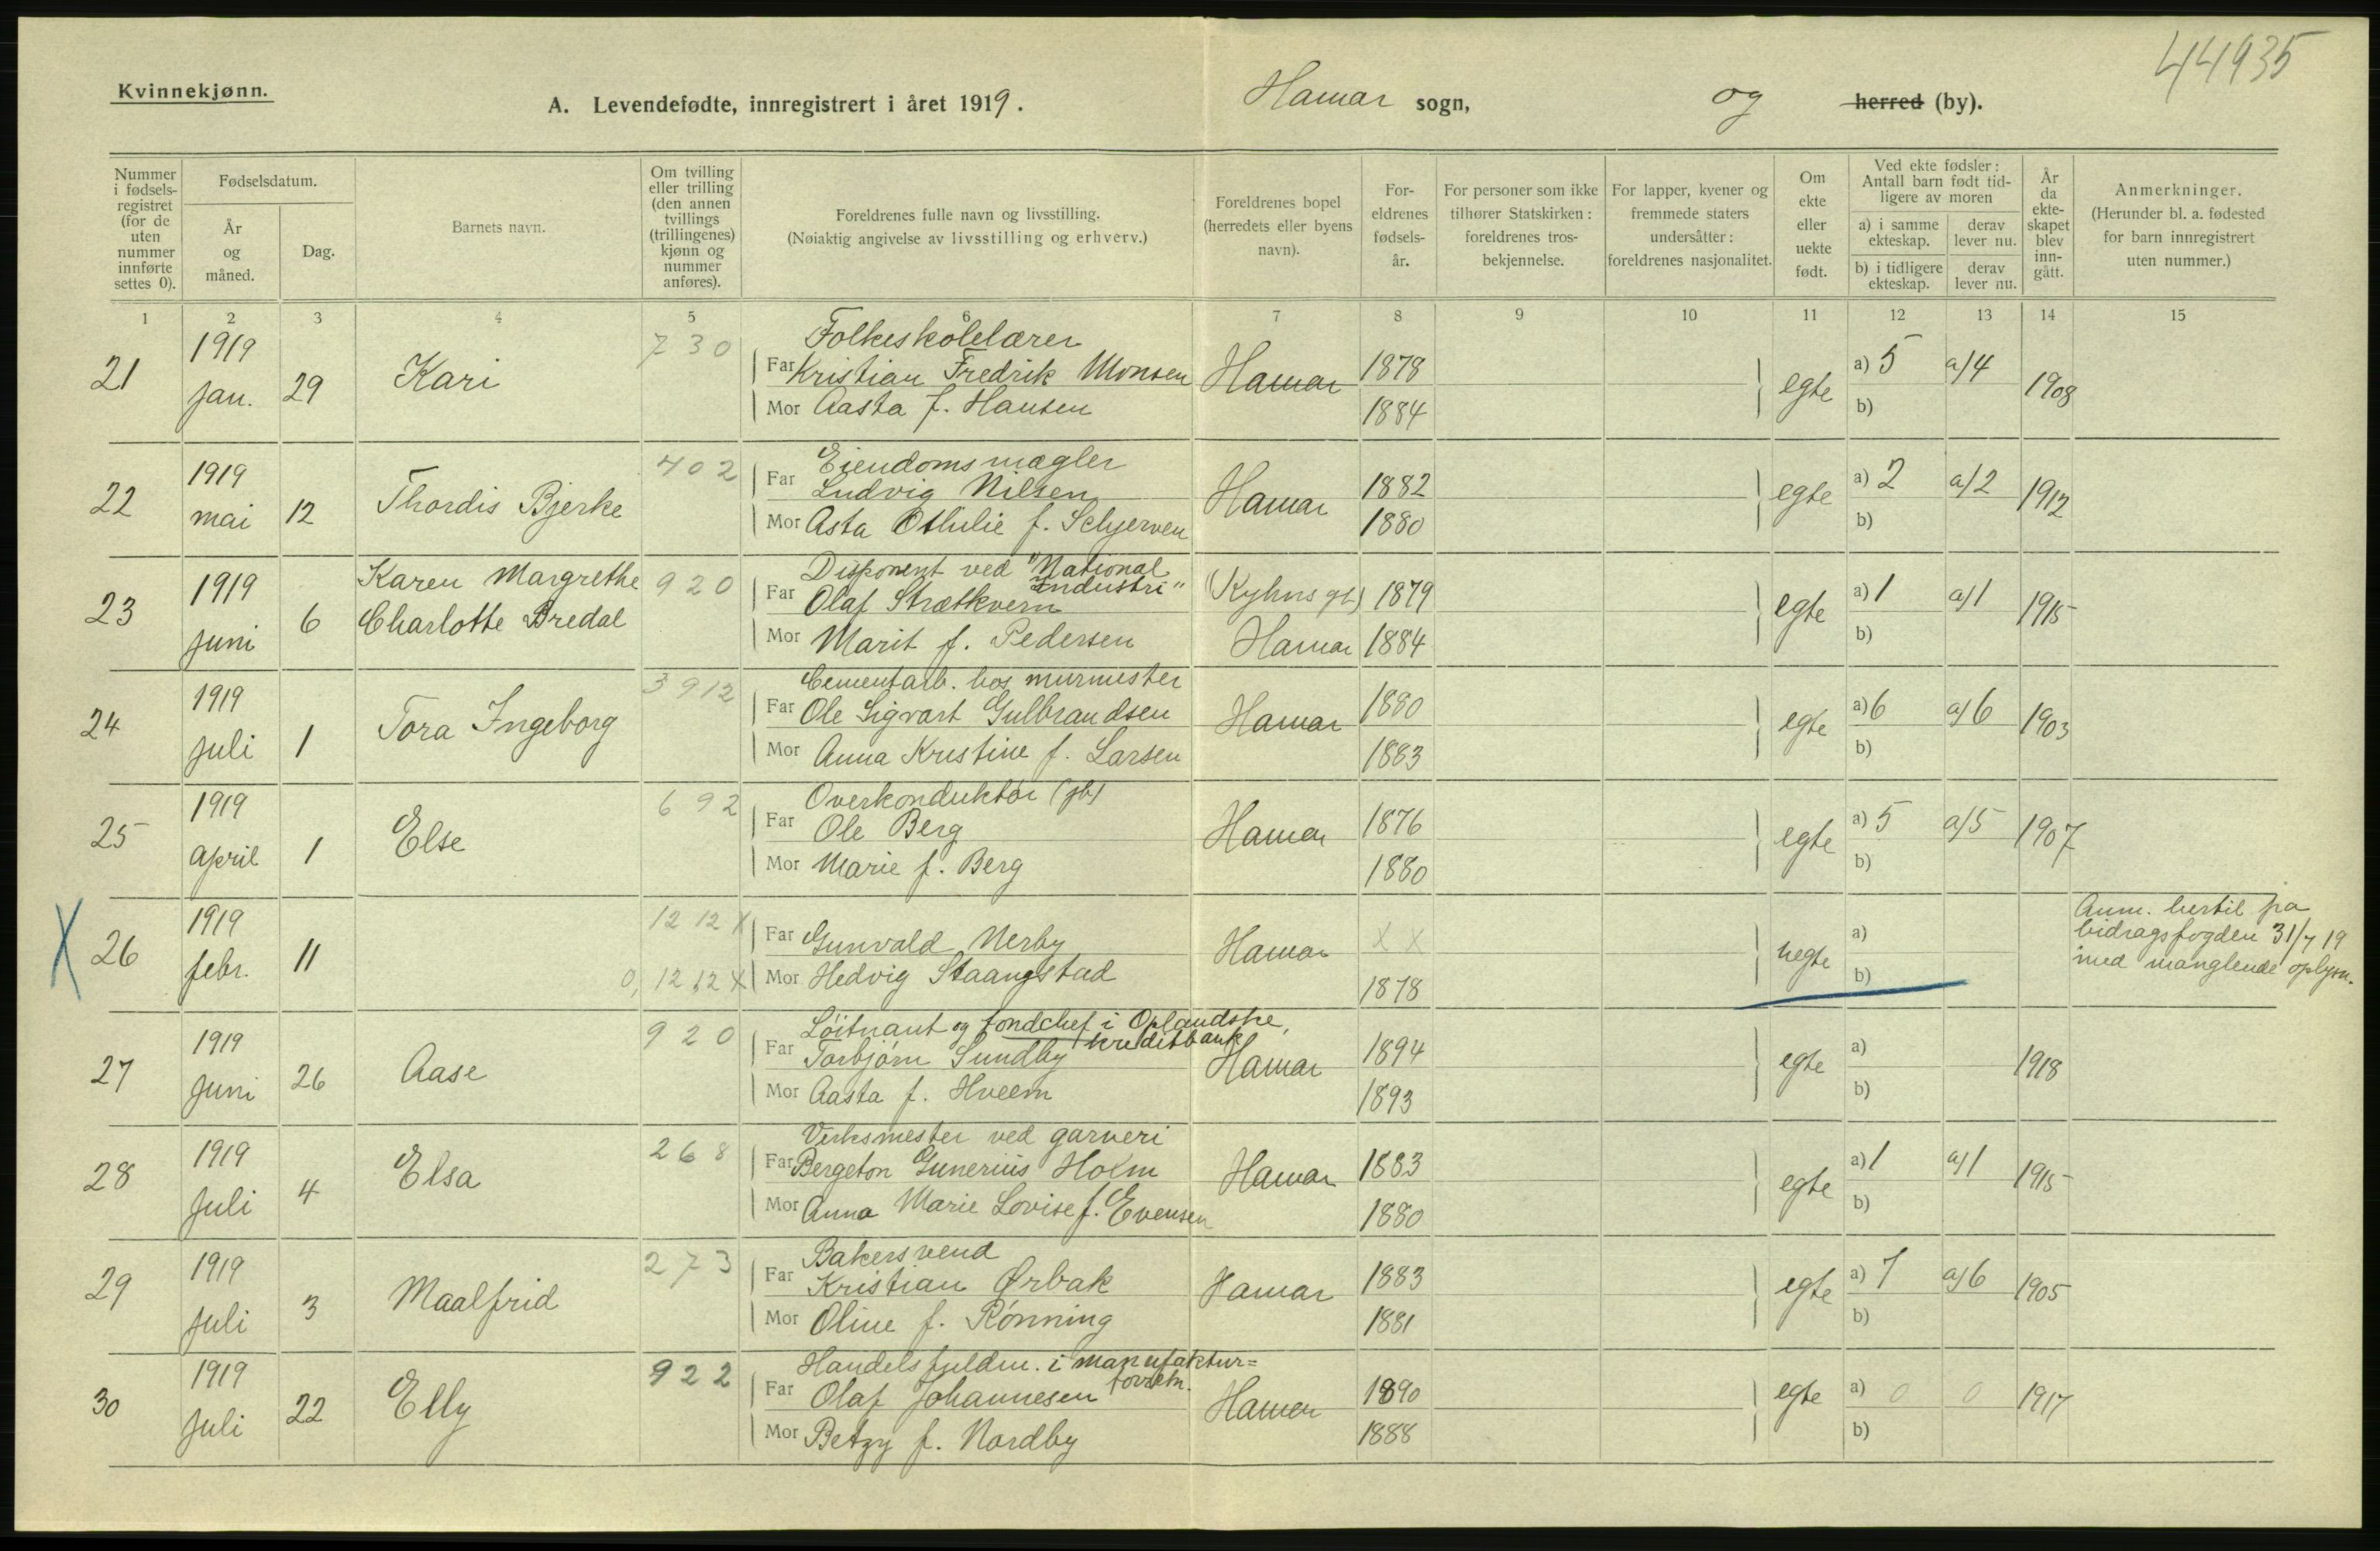 44935
Kvinnekjønn.
A. Levendefødte, innregistrert i året 1919. Hamar sogn, og herred (by).
Nummer i fødsels-registret (for de uten nummer innførte settes 0).
Fødselsdatum.
År og måned.
Dag.
Barnets navn.
Om tvilling eller trilling (den annen tvillings (trillingenes) kjønn og nummer anføres).
Foreldrenes fulle navn og livsstilling.
(Nøiaktig angivelse av livsstilling og erhverv.)
Foreldrenes bopel (herredets eller byens navn).
For-eldrenes fødsels-år.
For personer som ikke tilhører Statskirken: foreldrenes tros-bekjennelse.
For lapper, kvener og fremmede staters undersåtter: foreldrenes nasjonalitet.
Om ekte eller uekte født.
Ved ekte fødsler: Antall barn født tid-ligere av moren
a) i samme ekteskap.
derav lever nu.
b) i tidligere ekteskap.
derav lever nu.
År da ekte-skapet blev inn-gått.
Anmerkninger.
(Herunder bl. a. fødested for barn innregistrert uten nummer.)
1 2 3 4 5 6 7 8 9 10 11 12 13 14 15
21 1919 Jan. 29 Kari 730
Folkeskolelærer
Far Kristian Fredrik Monsen Hamar 1878 egte a) 5 a/4 1908
Mor Aasta f. Hansen 1884 b)
22 1919 mai 12 Thordis Bjerke 402
Eiendomsmægler
Far Ludvig Nilsen Hamar 1882 egte a) 2 a/2 1912
Mor Asta Othilie f. Schjerven 1880 b)
23 1919 Juni 6 Karen Margrethe Charlotte Bredal 920
Disponent ved "National Industri"
Far Olaf Strætkvern (Kyhns gt) 1879 egte a) 1 a/1 1915
Mor Marit f. Pedersen Hamar 1884 b)
24 1919 Juli 1 Tora Ingeborg 3912
Cementarb. hos murmester
Far Ole Sigvart Gulbrandsen Hamar 1880 egte a) 6 a/6 1903
Mor Anna Kristine f. Larsen 1883 b)
25 1919 April 1 Else 692
Overkonduktør (jb)
Far Ole Berg Hamar 1876 egte a) 5 a/5 1907
Mor Marie f. Berg 1880 b)
X 26 1919 febr. 11 12 12 X
Far Gunvald Nerby Hamar X X uegte a)
0, 12 12 X Mor Hedvig Staangstad 1878 b)
Anm. hertil fra
bidragsfogden 31/7 19
med manglende oplysn.
27 1919 Juni 26 Aase 920
Löitnant og fondchef i Oplandske kreditbank
Far Torbjørn Sundby Hamar 1894 egte a) 1918
Mor Aasta f. Hveem 1893 b)
28 1919 Juli 4 Elsa 268
Verksmester ved garveri
Far Bergeton Gunerius Holm Hamar 1883 egte a) 1 a/1 1915
Mor Anna Marie Lovise f. Evensen 1880 b)
29 1919 Juli 3 Maalfrid 273
Bakersvend
Far Kristian Ørbak Hamar 1883 egte a) 7 a/6 1905
Mor Oline f. Rønning 1881 b)
30 1919 Juli 22 Elly 922
Handelsfuldm. i manufaktur=forretn.
Far Olaf Johannesen Hamar 1890 egte a) 0 0 1917
Mor Betzy f. Nordby 1888 b)